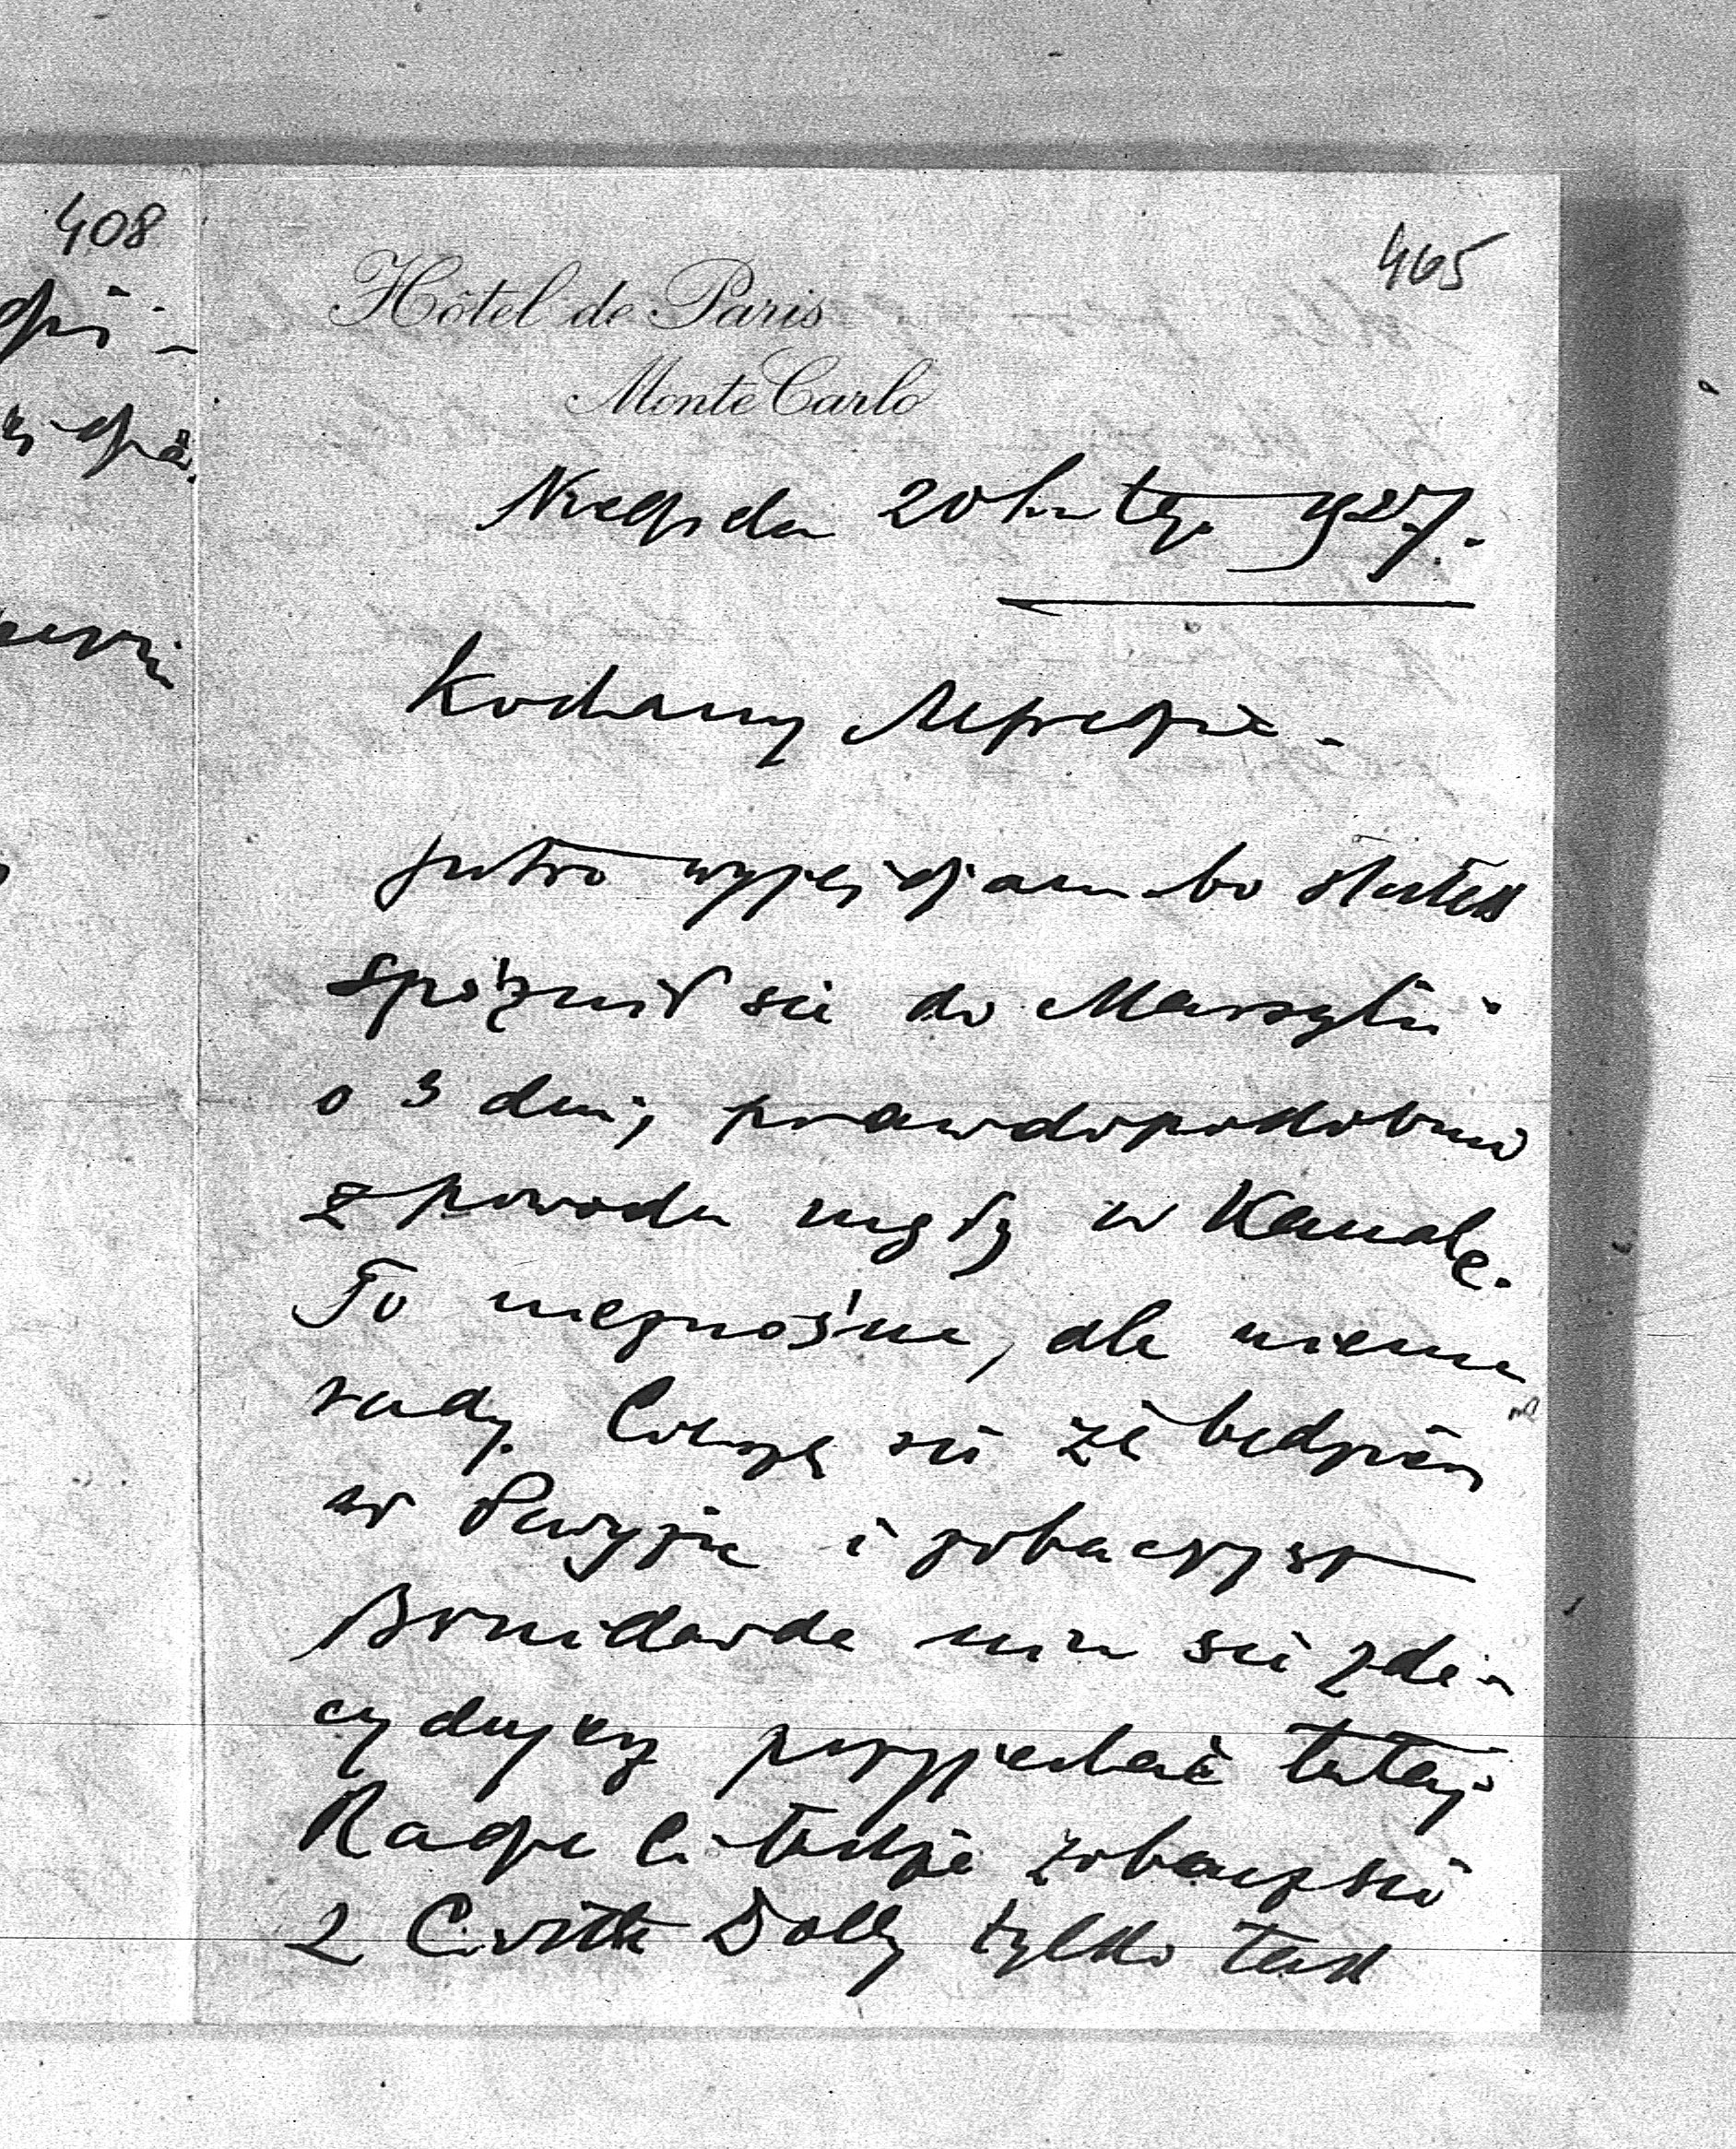 408
465
Hôtel de Paris
Monte Carlo
Niedziela 20 lutego 1927.
Kochany
jutro wyjeżdżam bo statek
spóźnił się do Marsylii
o 3 dni, prawdopodobnie
z powodu mgły w Kanale.
To nieznośne, ale niema
rady. Cieszę się że będziesz
w Paryżu i zobaczysz
nim się zde-
cydujesz przyjechać tutaj
Radzę Ci także zobacz się
z Ciotką Dolly tylko tak